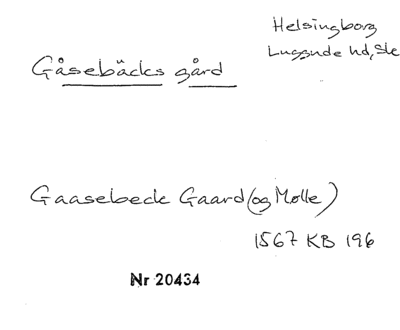 Helsingborg
Luggude hd, Sk
Gåsebäcks gård
Gaasebeck Gaard (og Mølle)
1567 KB 196
Nr 20434